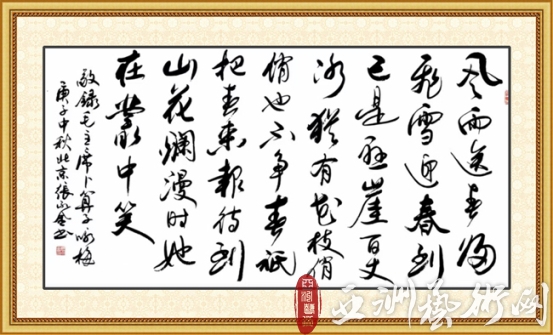 风雨送春归
飛雪迎春到
已是悬崖百丈
冰犹有花枝俏
俏也不争春祇
把春来報待到
山花爛漫时她
在叢中笑
敬録毛主席卜算子咏梅
庚子中秋北京張山金书
亚洲藝術网